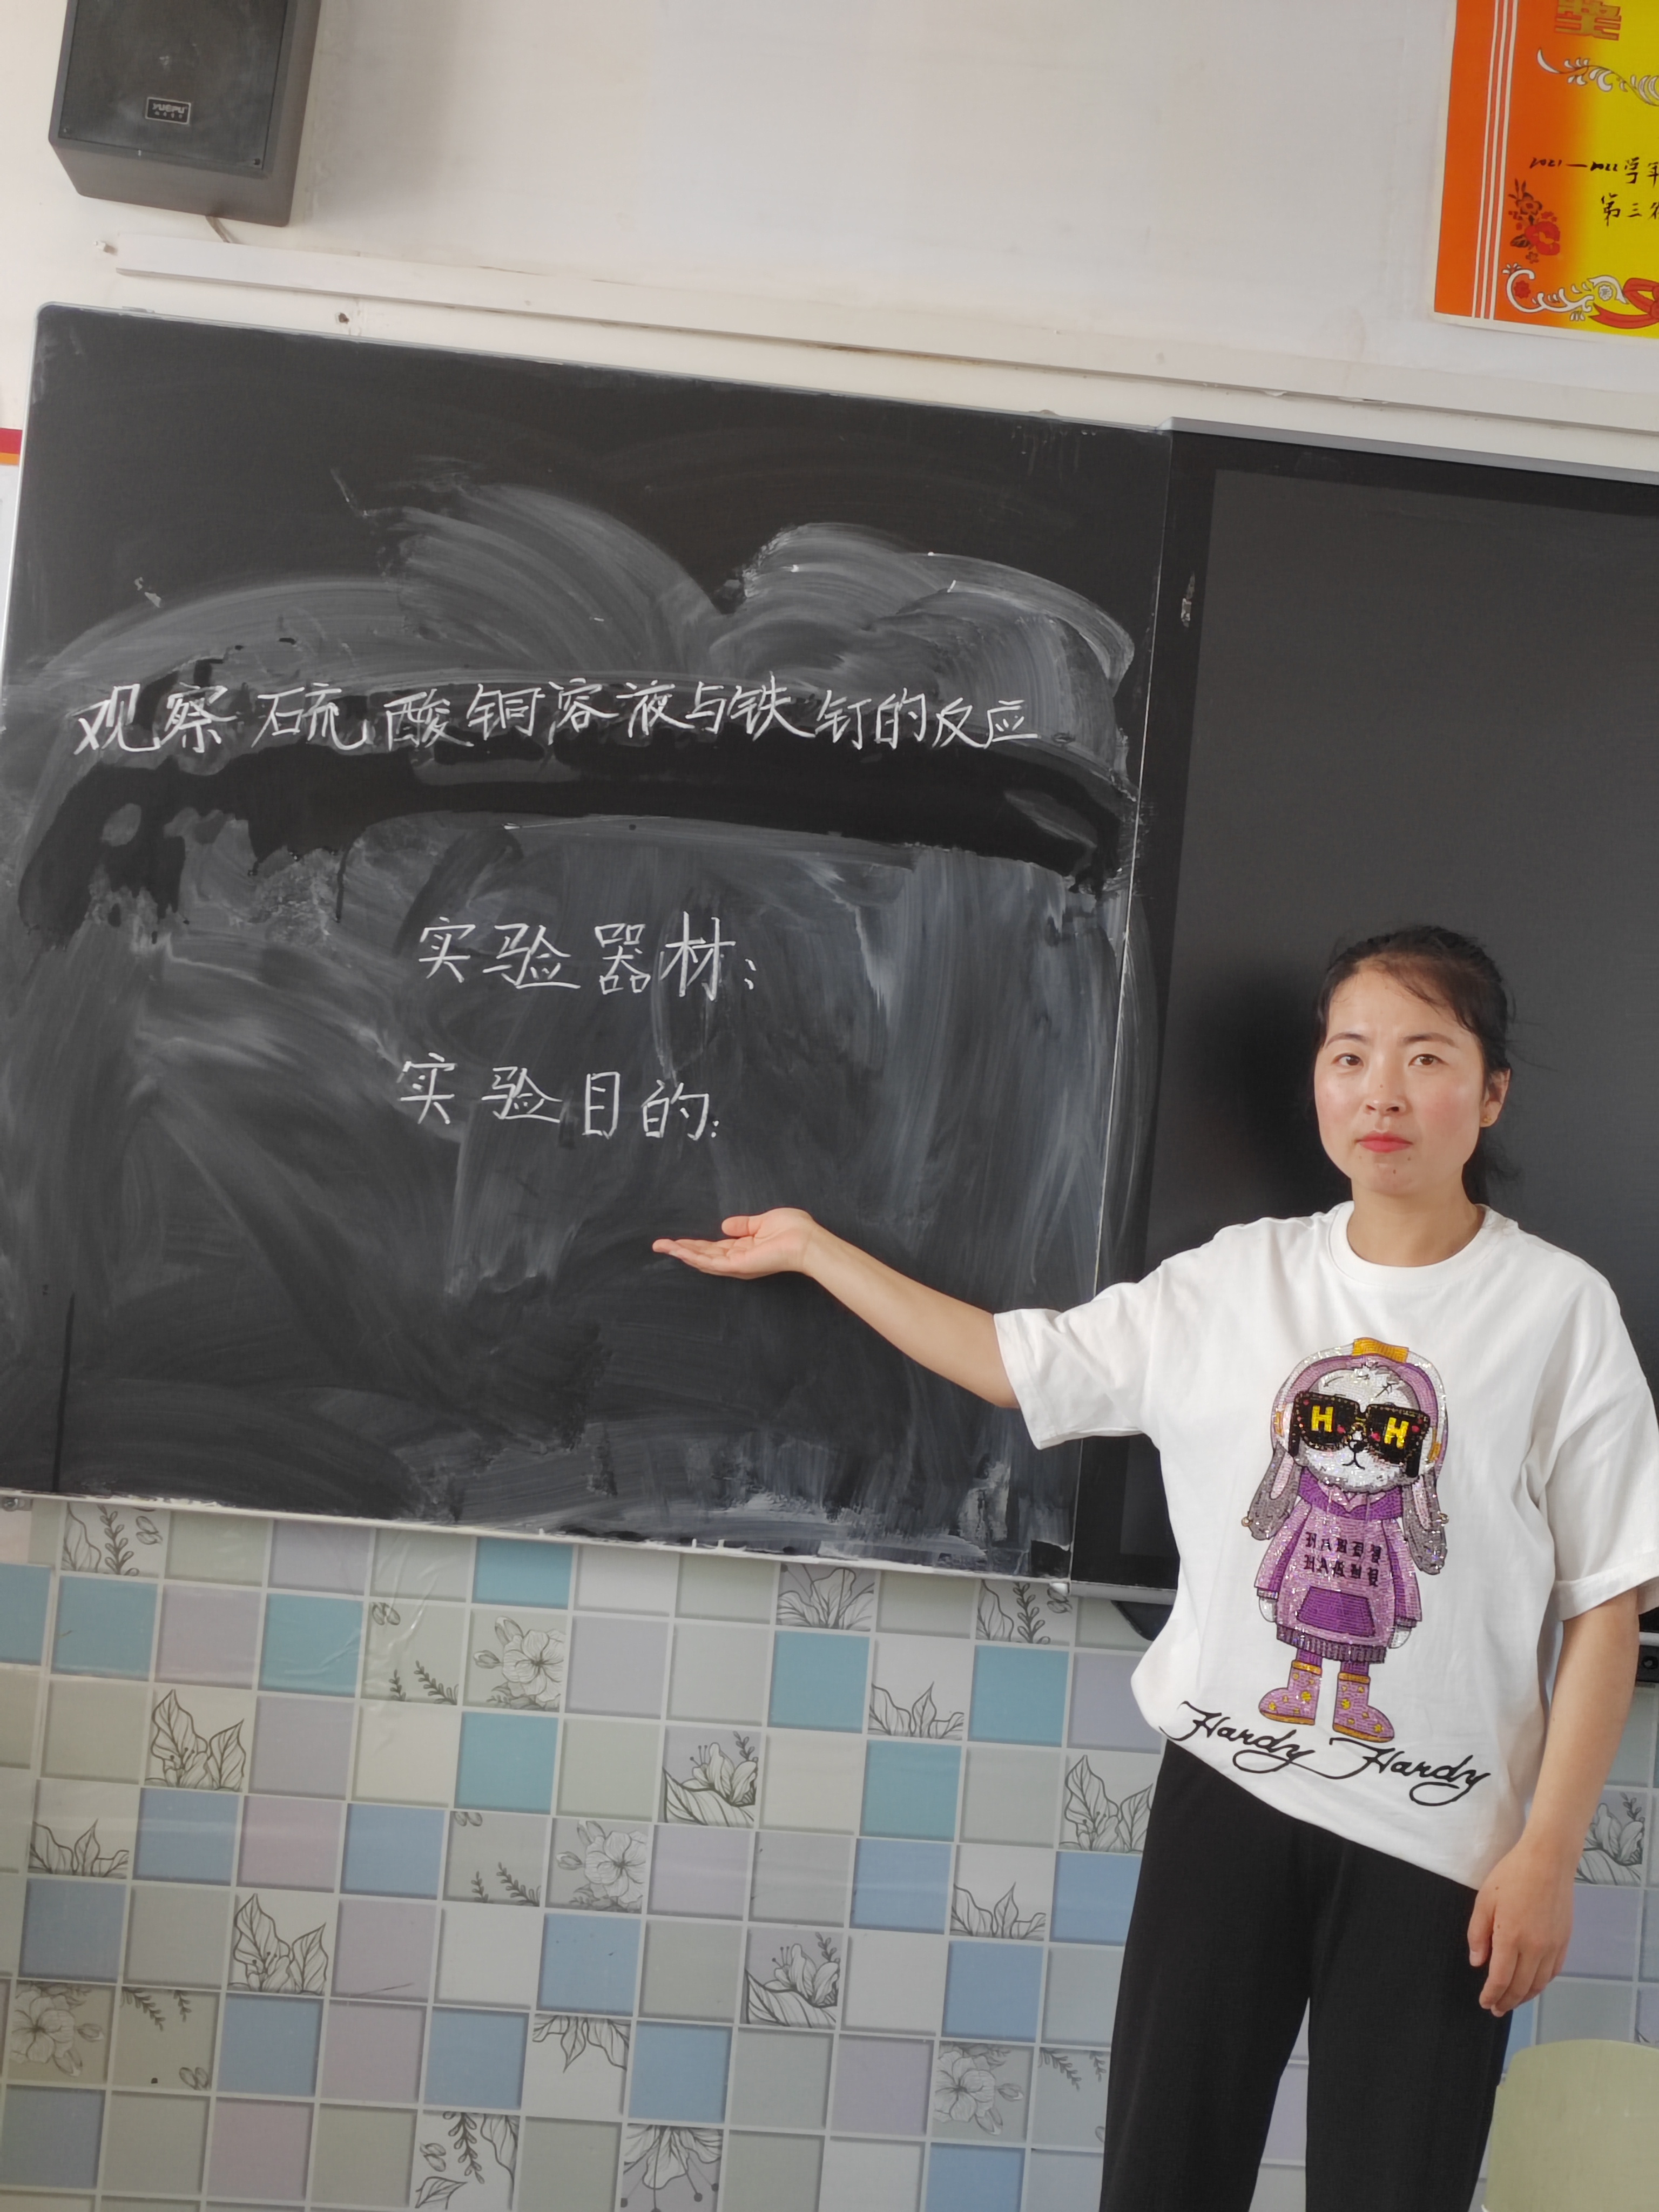 YUEPU
奖
2021—2022学年
第三
观察硫酸铜溶液与铁钉的反应
实验器材:
实验目的:
H H
Hardy Hardy